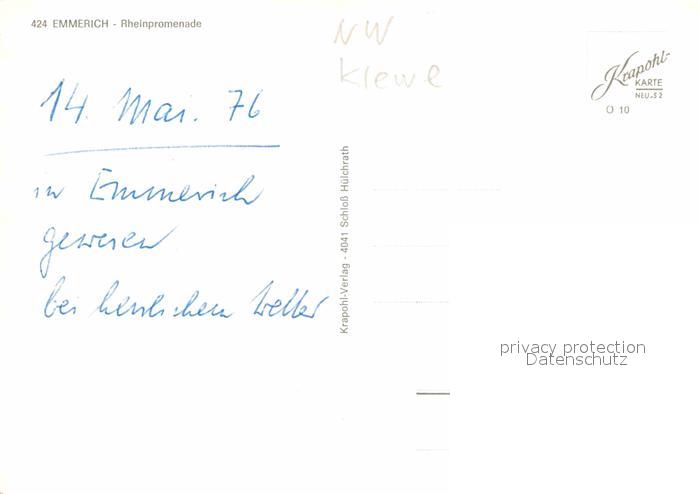 424 EMMERICH - Rheinpromenade
NW
Klewe
Krapohl-
KARTE
NEU-52
O 10
14. Mai. 76
in Emmerich
gewesen
bei herrlichem Wetter
Krapohl-Verlag - 4041 Schloß Hülchrath
privacy protection
Datenschutz